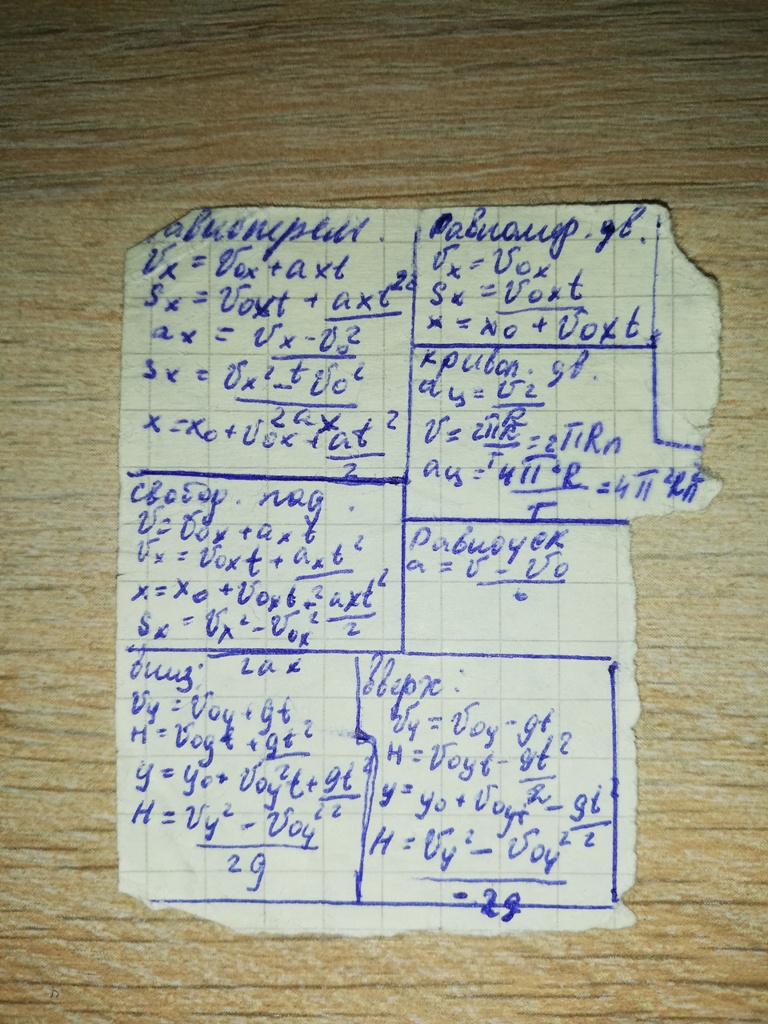 Равноперем.
Vx = V0x + axt
Sx = V0xt + axt²/2
ax = Vx - V0/t
Sx = Vx² - V0²/2ax
x = x0 + V0x + at²/2
Равномер. дв.
Vx = V0x
Sx = V0xt
x = x0 + V0xt
Кривол. дв.
aц = V²/R
V = 2πR/T = 2πRn
aц = 4π²R/T = 4π²Rn²
Свобод. пад.
V = V0x + axt
Vx = V0xt + axt²/2
x = x0 + V0xt + axt²/2
Sx = Vx² - V0x²/2ax
Равноуск
a = V - V0/t
Вниз:
Vy = V0y + gt
H = V0yt + gt²/2
y = y0 + V0yt + gt²/2
H = Vy² - V0y²/2g
Вверх:
Vy = V0y - gt
H = V0yt - gt²/2
y = y0 + V0yt - gt²/2
H = Vy² - V0y²/-2g